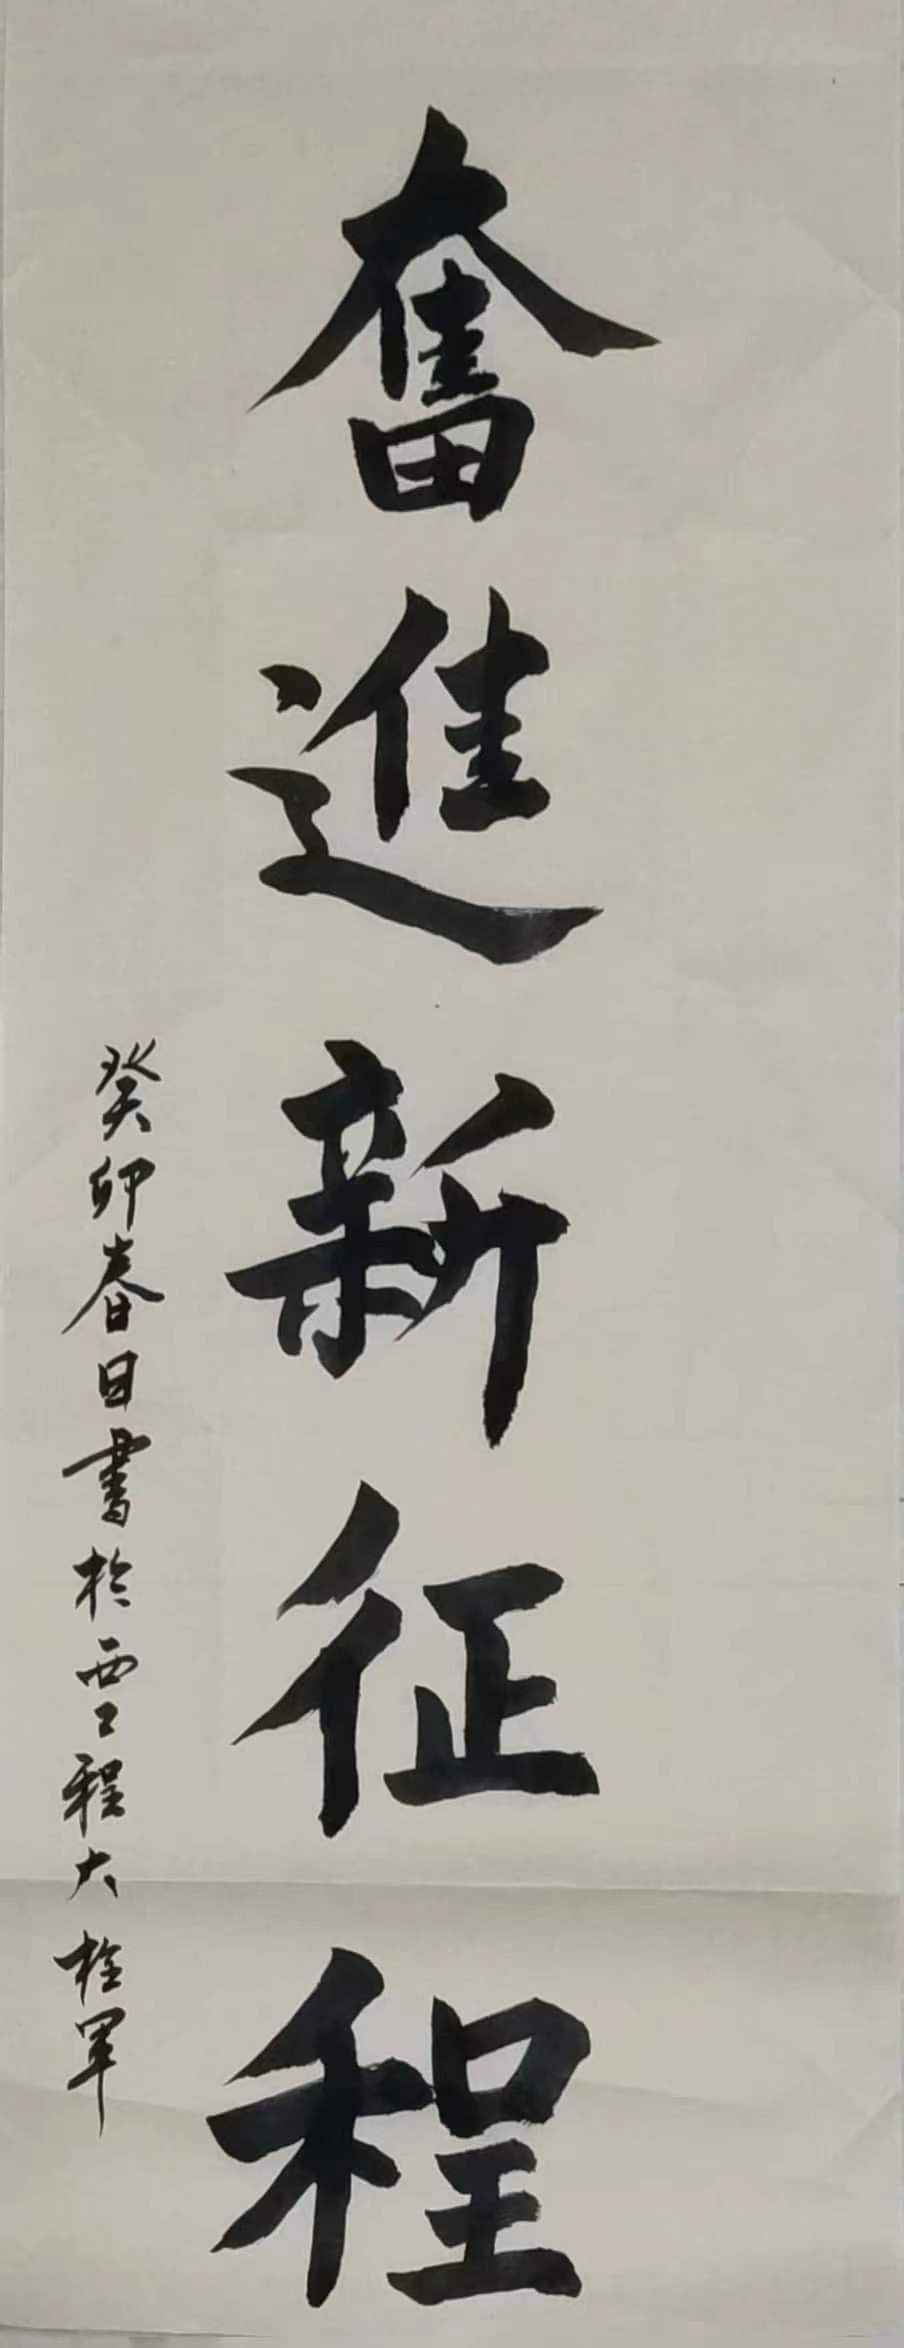 奮進新征程
癸卯春日書於西工程大 栓軍